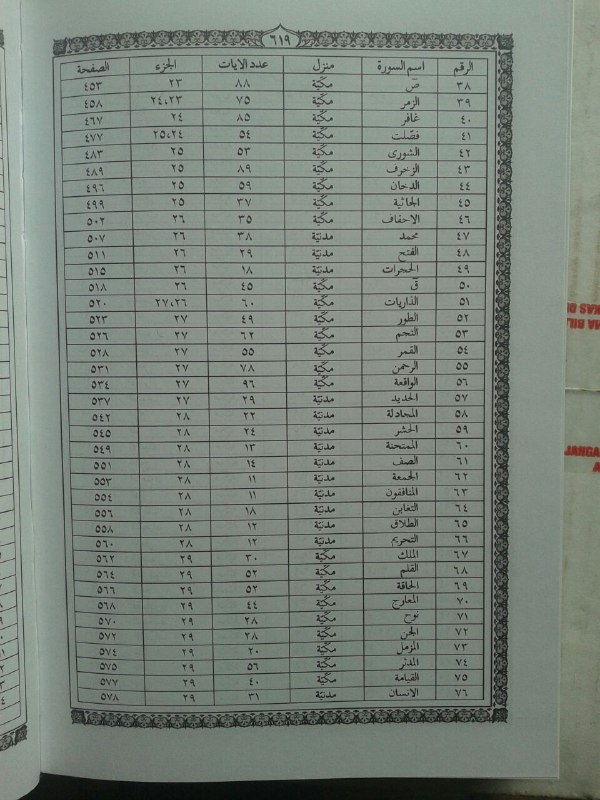 ٦١٩
الرقم اسم السورة منزل عدد الايات الجزء الصفحة
٣٨ صٓ مكيّة ٨٨ ٢٣ ٤٥٣
٣٩ الزمر مكيّة ٧٥ ٢٤،٢٣ ٤٥٨
٤٠ غافر مكيّة ٨٥ ٢٤ ٤٦٧
٤١ فصّلت مكيّة ٥٤ ٢٥،٢٤ ٤٧٧
٤٢ الشورى مكيّة ٥٣ ٢٥ ٤٨٣
٤٣ الزخرف مكيّة ٨٩ ٢٥ ٤٨٩
٤٤ الدخان مكيّة ٥٩ ٢٥ ٤٩٦
٤٥ الجاثية مكيّة ٣٧ ٢٥ ٤٩٩
٤٦ الاحقاف مكيّة ٣٥ ٢٦ ٥٠٢
٤٧ محمد مدنيّة ٣٨ ٢٦ ٥٠٧
٤٨ الفتح مدنيّة ٢٩ ٢٦ ٥١١
٤٩ الحجرات مدنيّة ١٨ ٢٦ ٥١٥
٥٠ قٓ مكيّة ٤٥ ٢٦ ٥١٨
٥١ الذاريات مكيّة ٦٠ ٢٧،٢٦ ٥٢٠
٥٢ الطور مكيّة ٤٩ ٢٧ ٥٢٣
٥٣ النجم مكيّة ٦٢ ٢٧ ٥٢٦
٥٤ القمر مكيّة ٥٥ ٢٧ ٥٢٨
٥٥ الرحمن مكيّة ٧٨ ٢٧ ٥٣١
٥٦ الواقعة مكيّة ٩٦ ٢٧ ٥٣٤
٥٧ الحديد مدنيّة ٢٩ ٢٧ ٥٣٧
٥٨ المجادلة مدنيّة ٢٢ ٢٨ ٥٤٢
٥٩ الحشر مدنيّة ٢٤ ٢٨ ٥٤٥
٦٠ الممتحنة مدنيّة ١٣ ٢٨ ٥٤٩
٦١ الصف مدنيّة ١٤ ٢٨ ٥٥١
٦٢ الجمعة مدنيّة ١١ ٢٨ ٥٥٣
٦٣ المنافقون مدنيّة ١١ ٢٨ ٥٥٤
٦٤ التغابن مدنيّة ١٨ ٢٨ ٥٥٦
٦٥ الطلاق مدنيّة ١٢ ٢٨ ٥٥٨
٦٦ التحريم مدنيّة ١٢ ٢٨ ٥٦٠
٦٧ الملك مكيّة ٣٠ ٢٩ ٥٦٢
٦٨ القلم مكيّة ٥٢ ٢٩ ٥٦٤
٦٩ الحاقة مكيّة ٥٢ ٢٩ ٥٦٦
٧٠ المعارج مكيّة ٤٤ ٢٩ ٥٦٨
٧١ نوح مكيّة ٢٨ ٢٩ ٥٧٠
٧٢ الجن مكيّة ٢٨ ٢٩ ٥٧٢
٧٣ المزمل مكيّة ٢٠ ٢٩ ٥٧٤
٧٤ المدثر مكيّة ٥٦ ٢٩ ٥٧٥
٧٥ القيامة مكيّة ٤٠ ٢٩ ٥٧٧
٧٦ الانسان مدنيّة ٣١ ٢٩ ٥٧٨